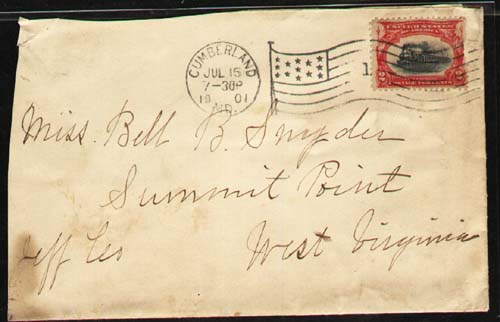 CUMBERLAND
JUL 15
7-30P
1901
MD.
UNITED STATES
OF AMERICA
2 2
Miss. Bell B. Snyder
Summit Point
Jeff Co
West Virginia